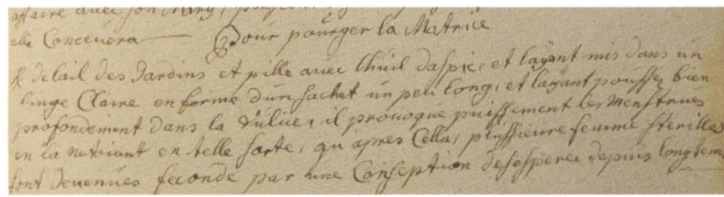 affaire avec son Mary,
elle Concevera — Pour pourger la Matrice
℞ delail des Jardins et pille avec lhuil daspic, et layant mis dans un
linge Claire en forme dun sachet un peu long, et layant poussez bien
profondement dans la Vulve, il provoque puissement les Menstrues
en la netiant en telle sorte, qu'apres Cella, plussieure femme sterille
sont devenues feconde par une Conseption desesperee depuis longtem